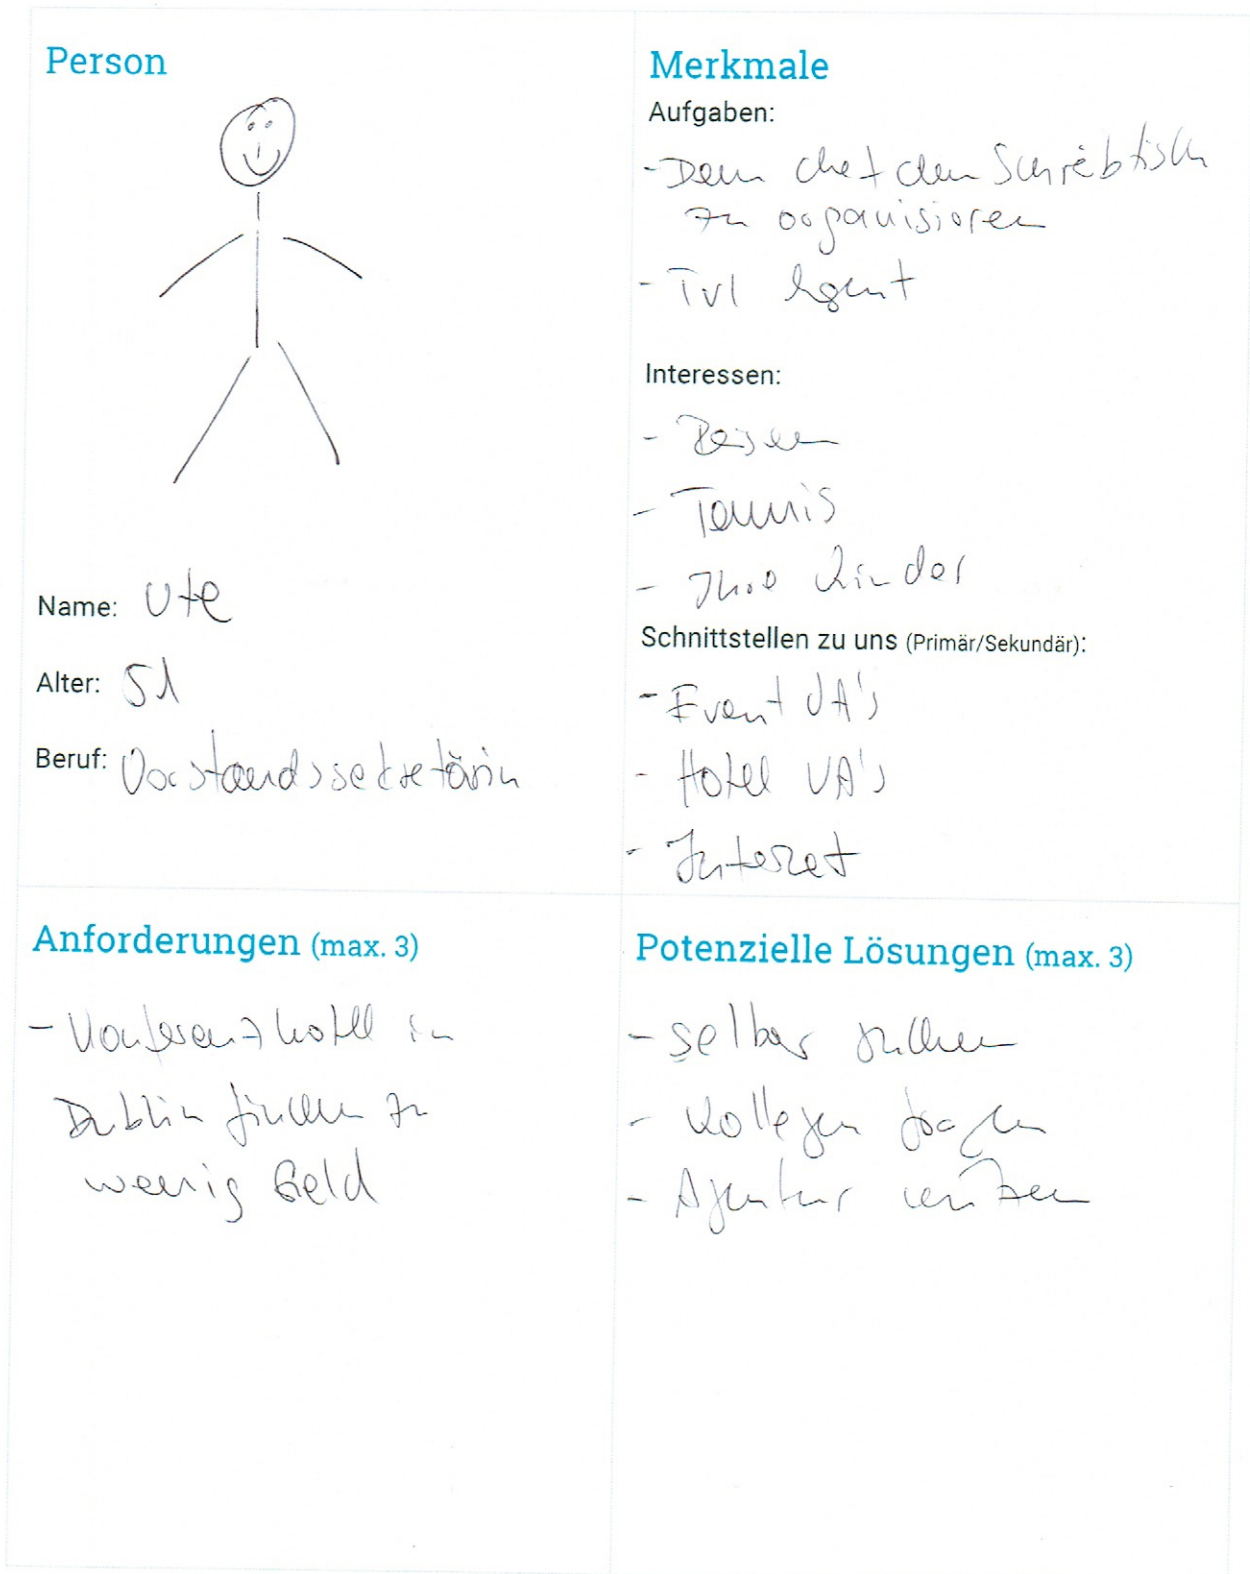 Person
Name: Ute
Alter: 51
Beruf: Vorstandssekretärin
Merkmale
Aufgaben:
- Dem Chef den Schreibtisch
zu organisieren
- Tvl Agent
Interessen:
- Reisen
- Tennis
- Ihre Kinder
Schnittstellen zu uns (Primär/Sekundär):
- Event VA's
- Hotel VA's
- Internet
Anforderungen (max. 3)
- Konferenzhotel in
Dublin finden zu
wenig Geld
Potenzielle Lösungen (max. 3)
- selber suchen
- Kollegen fragen
- Agentur nutzen